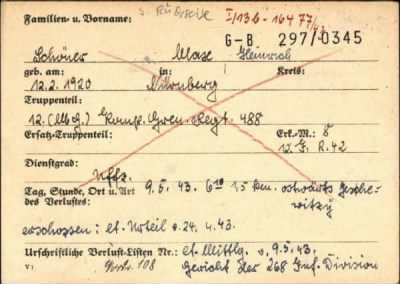 s. Rückseite
Familien- u. Vorname: I/136-164 77/43
G-B 297/0345
Schöner Max Heinrich
geb. am: in: Kreis:
12.2. 1920 Nürnberg
Truppenteil:
12. (M.G.) Komp. Gren. Regt. 488
Ersatz-Truppenteil: Erk.-M.: 8
12. J.R. 42
Dienstgrad:
Uffz.
Tag, Stunde, Ort u. Art 9.5. 43. 6 10 1,5 km. ostwärts
des Verlustes:
erschossen: lt. Urteil v. 24. 4. 43.
Urschriftliche Verlust-Listen Nr.: lt. Mittlg. v. 9.5.43.
V: 108 Gericht der 268 Inf. Division